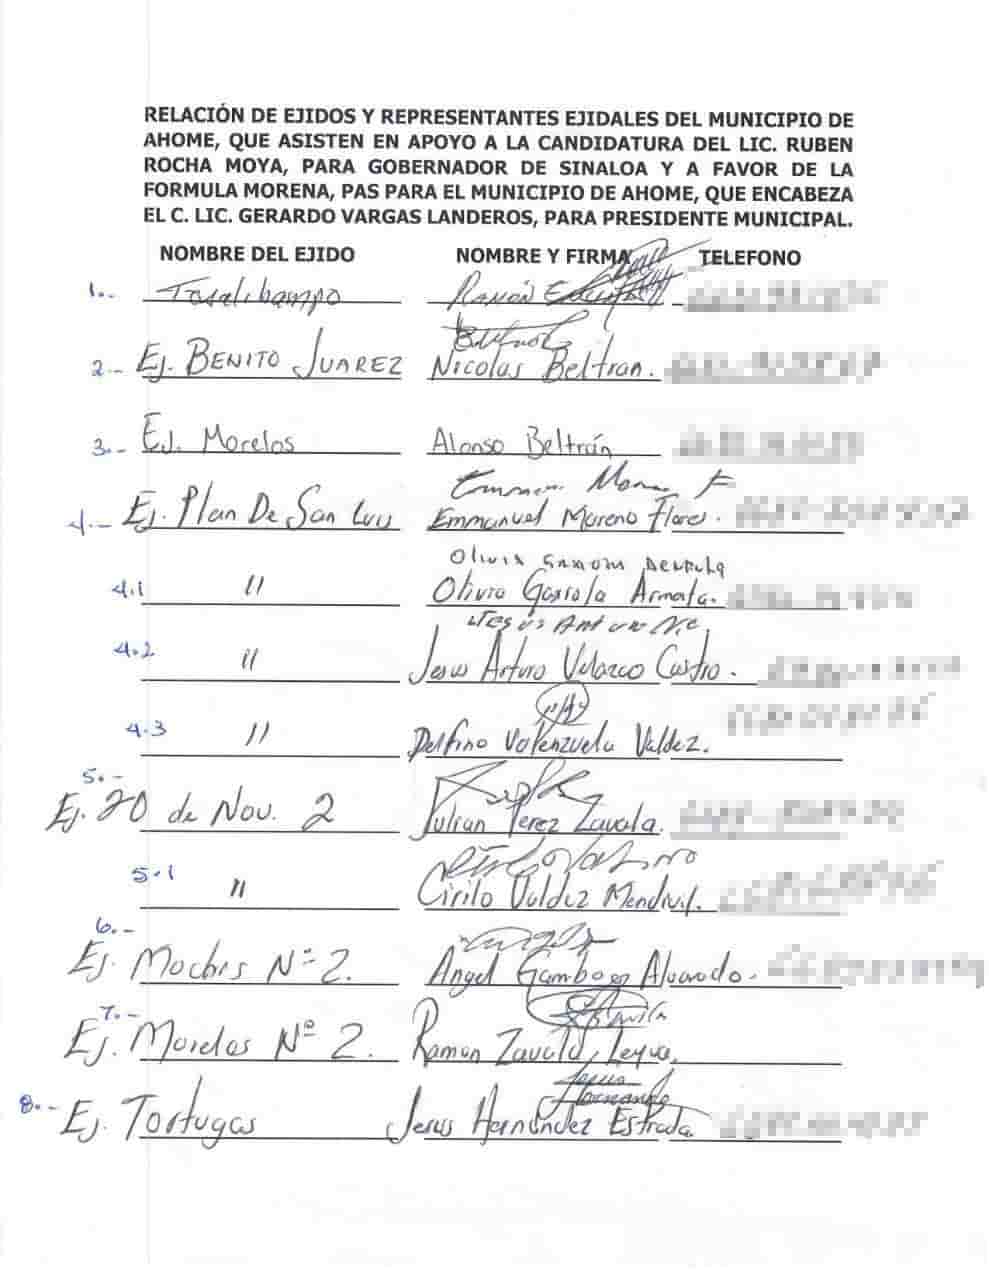 RELACIÓN DE EJIDOS Y REPRESENTANTES EJIDALES DEL MUNICIPIO DE
AHOME, QUE ASISTEN EN APOYO A LA CANDIDATURA DEL LIC. RUBEN
ROCHA MOYA, PARA GOBERNADOR DE SINALOA Y A FAVOR DE LA
FORMULA MORENA, PAS PARA EL MUNICIPIO DE AHOME, QUE ENCABEZA
EL C. LIC. GERARDO VARGAS LANDEROS, PARA PRESIDENTE MUNICIPAL.
NOMBRE DEL EJIDO NOMBRE Y FIRMA TELEFONO
1.- Ramón
2.- Ej. BENITO JUAREZ Nicolas Beltran.
3.- EJ. Morelos Alonso Beltrán
4.- Ej. Plan De San Luis Emmanuel Moreno Flores.
4.1 "
4.2 " Jesus Arturo Velazco Castro.
4.3 " Delfino Valenzuela Valdez.
5.-
Ej. 20 de Nov. 2 Julian Perez Zavala.
5.1 " Cirilo Valdez Mendivil.
6.-
Ej. Mochis Nº 2. Angel Gamboa Alvarado.
7.-
Ej. Morelos Nº 2. Ramon Zavala Leyva.
Jesus
Hernandez
8.- Ej. Tortugas Jesus Hernández Estrada